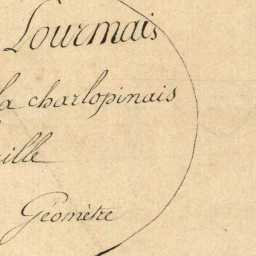 Lourmais
la charlopinais
ille
Géomètre